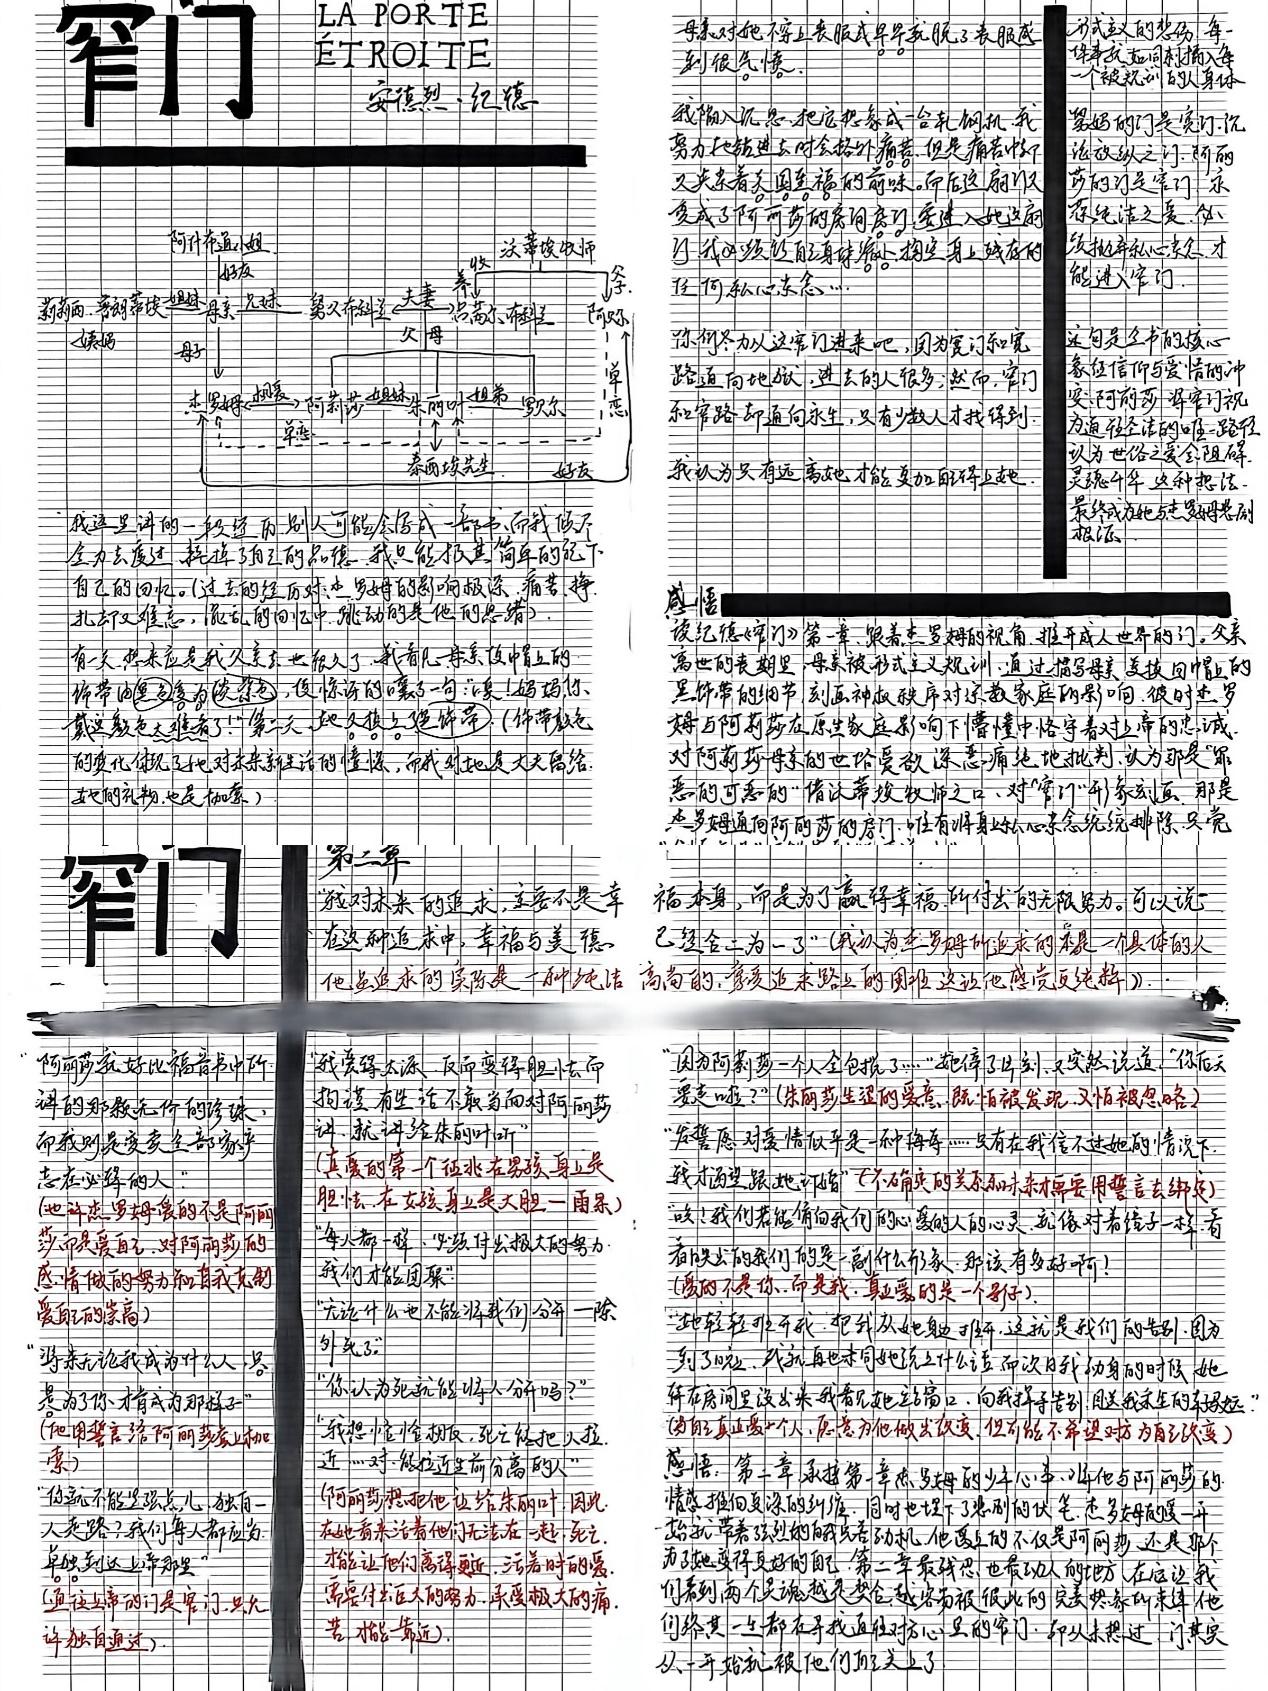 窄门
LA PORTE
ÉTROITE
安德烈·纪德
阿什布通小姐
沃蒂埃牧师
好友
收养
父子
莉莉西·普朗蒂埃 姐妹 母亲 兄妹 舅父布科兰 夫妻 吕茜尔·布科兰 阿贝尔
姨妈
父母
母子
单恋
杰罗姆 相爱 阿莉莎 姐妹 朱丽叶 姐弟 罗贝尔
单恋
泰西埃先生
好友
我这里讲的一段经历,别人可能会写成一部书,而我倾尽
全力去度过,耗掉了自己的品德,我只能极其简单的记下
自己的回忆。(过去的经历对杰罗姆的影响极深,痛苦,挣
扎却又难忘,混乱的回忆中,跳动的是他的思绪)
有一天,想来应是我父亲去世很久了,我看见母亲便帽上的
饰带由黑色变为淡紫色,便惊讶的嚷了一句:“噢!妈妈你
戴这颜色太难看了!”第二天,她又换上了黑饰带。(饰带颜色
的变化体现了她对未来新生活的憧憬,而我对她是丈夫留给
她的礼物,也是枷锁)
母亲对她不穿上丧服或早早就脱了丧服感
到很气愤。
我陷入沉思,把它想象成一台轧钢机,我
努力地钻进去时会格外痛苦,但是痛苦中却
又夹杂着天国至福的前味。而后这扇门又
变成了阿丽莎的房间房门,要进入她这扇
门,我必须经自身缩小,掏空身上残存的
任何私心杂念…
你们尽力从这窄门进来吧,因为宽门和宽
路通向地狱,进去的人很多;然而,窄门
和窄路却通向永生,只有少数人才找得到。
我认为只有远离她,才能更加配得上她。
形式主义的悲伤,每一
件事就如同刺插入每
一个被规训的人身体
舅妈的门是宽门,沉
沦放纵之门,阿丽
莎的门是窄门,永
葆纯洁之爱,必
须抛弃私心杂念,才
能进入窄门。
这句是全书的核心
象征信仰与爱情的冲
突,阿丽莎将窄门视
为通往圣洁的唯一路径
认为世俗之爱会阻碍
灵魂升华,这种想法
最终成为她与杰罗姆悲剧
根源。
感悟
读纪德《窄门》第一章,跟着杰罗姆的视角,推开成人世界的门。父亲
离世的丧期里,母亲被形式主义规训,通过描写母亲更换因帽上的
黑饰带的细节,刻画神权秩序对宗教家庭的影响。彼时杰罗
姆与阿莉莎在原生家庭影响下懵懂中恪守着对上帝的忠诚,
对阿莉莎母亲的世俗爱欲深恶痛绝地批判,认为那是“罪
恶的可恶的”借沃蒂埃牧师之口,对“窄门”形象刻画,那是
杰罗姆通向阿丽莎的房门,唯有将身上私心杂念统统排除,只觉
窄门
第二章
“我对未来的追求,主要不是幸福本身,而是为了赢得幸福所付出的无限努力。可以说
在这种追求中,幸福与美德已经合二为一了”(我认为杰罗姆所追求的不是一个具体的人
他追求的实际是一种纯洁高尚的,享受追求路上的困难,这让他感觉更纯粹)。
“阿丽莎就好比福音书中所
讲的那颗无价的珍珠,
而我则是变卖全部家产
志在必得的人”
(也许杰罗姆爱的不是阿丽
莎而是爱自己,对阿丽莎的
感情做的努力和自我克制
爱自己的崇高)
“将来无论我成为什么人,总
是为了你,才肯成为那样子”
(他用誓言给阿丽莎套上枷
锁)
“你就不能坚强点儿,独自一
人走路?我们每人都应当
单独到达上帝那里”
(通往上帝的门是窄门,只允
许独自通过)
“我爱得太深,反而变得胆怯而
拘谨,有些话不敢当面对阿丽莎
讲,就讲给朱丽叶听”
(真爱的第一个征兆,在男孩身上是
胆怯,在女孩身上是大胆—雨果)
“每人都一样,必须付出极大的努力,
我们才能团聚”
“无论什么也不能将我们分开—除
外死了”
“你认为死就能将人分开吗?”
“我想恰恰相反,死亡能把人拉
近…对,能拉近生前分离的人”
(阿丽莎想把他让给朱丽叶,因此
在她看来活着他们无法在一起,死亡
才能让他们离得更近,活着时的爱
需要付出巨大的努力,承受极大的痛
苦才能靠近)
“因为阿莉莎一个人全包揽了……”她停了片刻,又突然说道,“你后天
要走啦?”(朱丽莎生涩的爱意,既怕被发现,又怕被忽略)
“发誓愿对爱情似乎是一种侮辱……只有在我信不过她的情况下,
我才渴望跟她订婚”(不确定的关系和未来才需要用誓言去绑定)
“唉!我们若能俯向我们心爱的人的心灵,就像对着镜子一样,看
看映出的我们的是一副什么形象,那该有多好啊!
(爱的不是你,而是我,真正爱的是一个影子)
“她轻轻推开我,把我从她身边推开,这就是我们的告别,因为
到了晚上,我就再也未同她说上什么话,而次日我动身的时候,她
待在房间里没出来,我看见她立在窗口,向我挥手告别,目送我乘坐的车驶远”
(当自己真正爱一个人,愿意为他做出改变,但可能不希望对方为自己改变)
感悟:第二章承接第一章杰罗姆的少年心事,将他与阿丽莎的
情感推向更深的纠缠,同时也埋下了悲剧的伏笔,杰罗姆的爱一开
始就带着强烈的自我完善动机,他爱上的不仅是阿丽莎,还是那个
为了她变得更好的自己。第二章最残忍,也最动人的地方,在应让我
们看到两个灵魂越是契合,越容易被彼此的完美想象所束缚,他
们终其一生都在寻找通往对方心里的窄门,却从未想过,门其实
从一开始就被他们自己关上了。